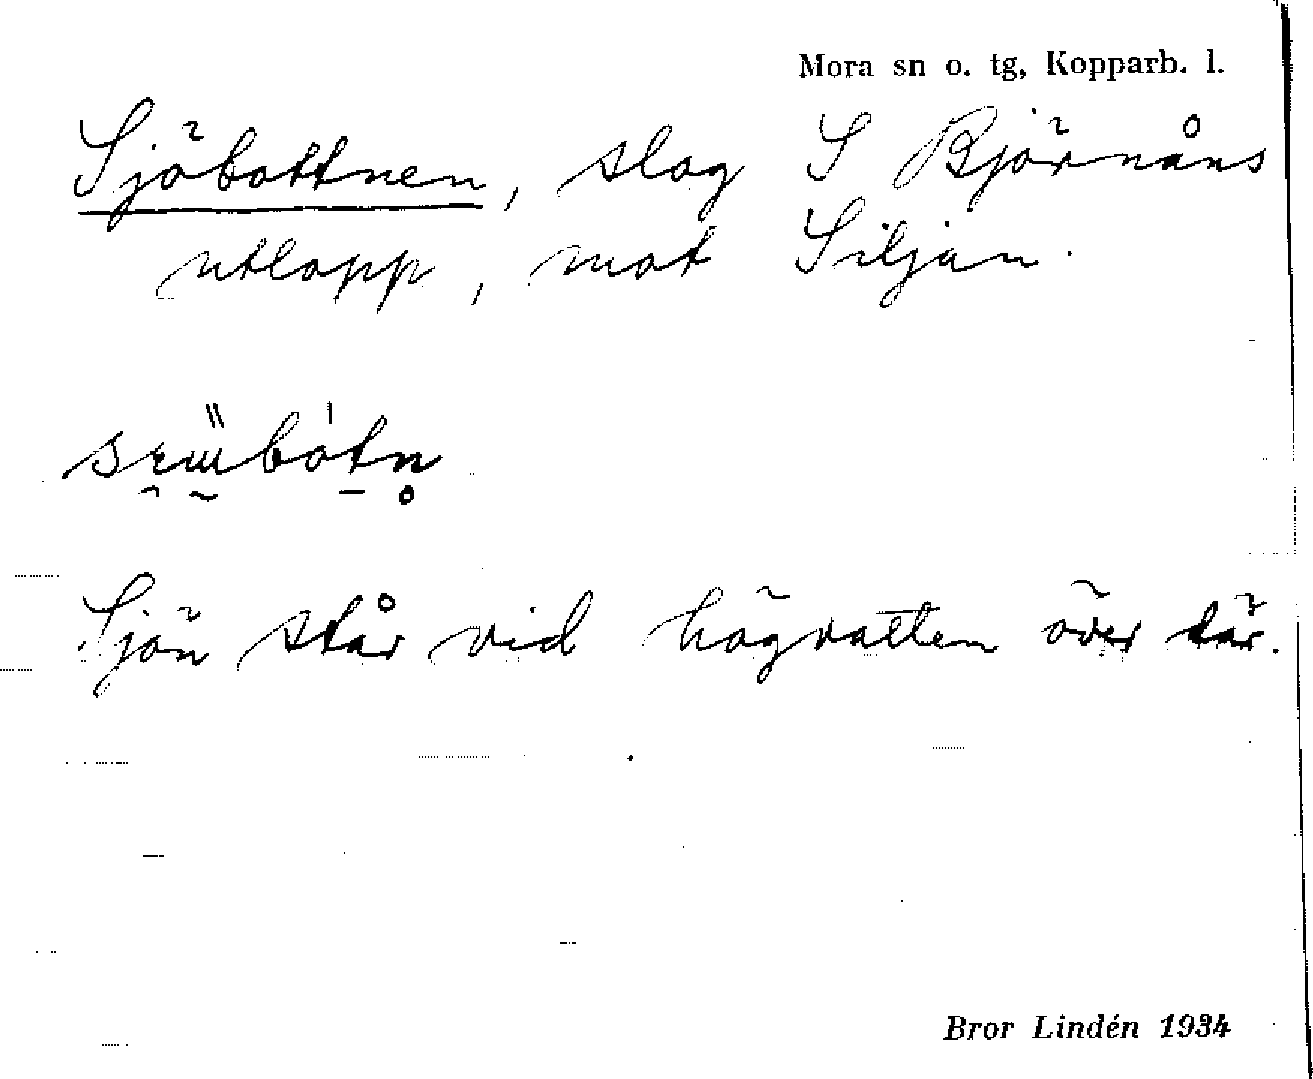 Mora sn o. tg, Kopparb. l.
Sjöbottnen, slog S Björnåns
utlopp, mot Siljan.
Sjön står vid högvatten över där.
Bror Lindén 1934